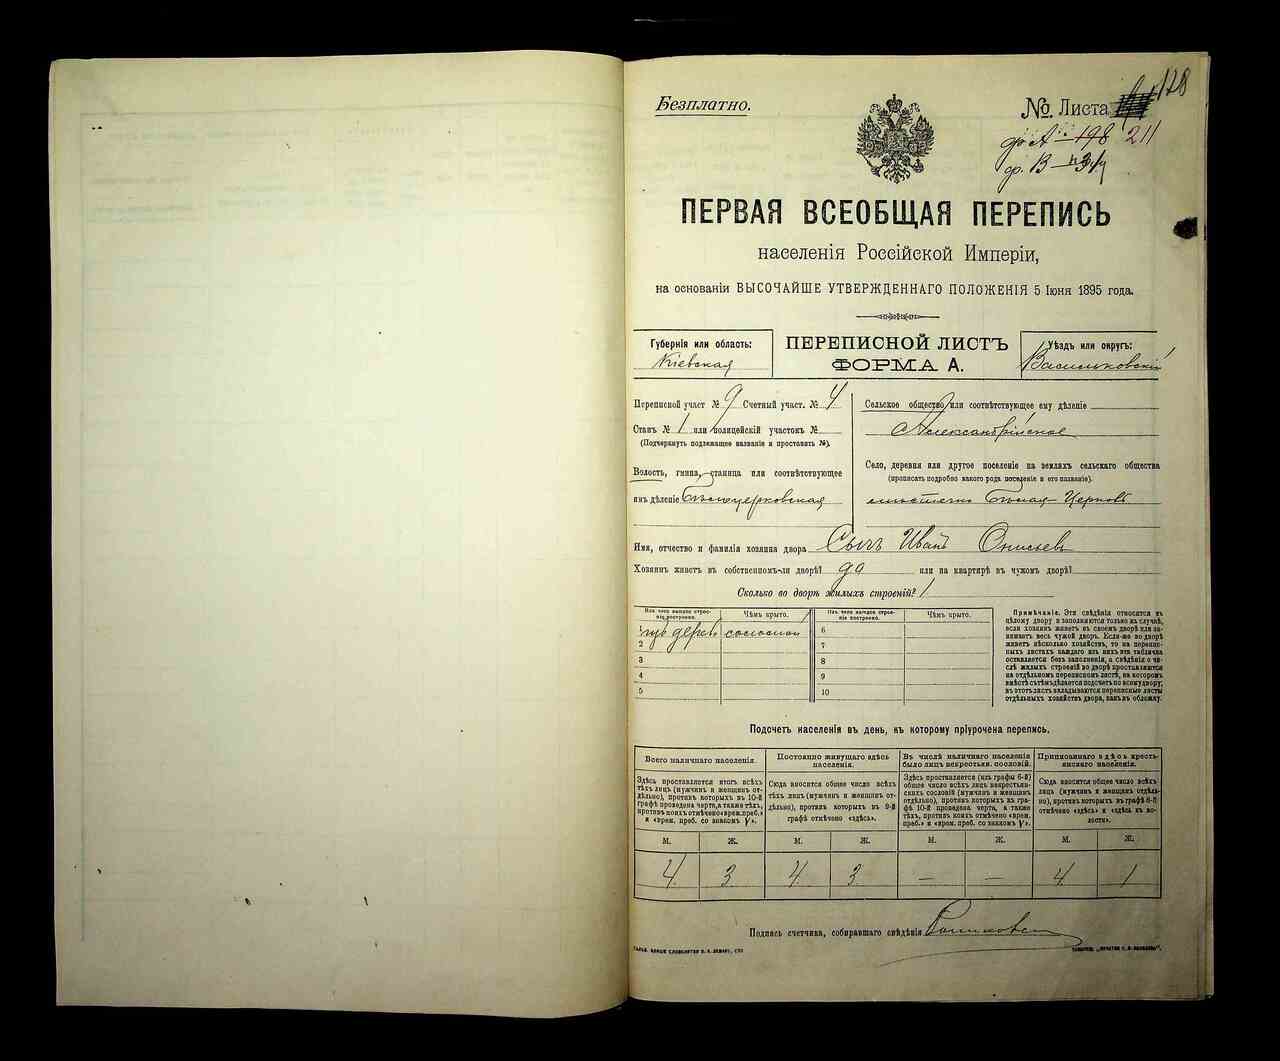 Безплатно.
№ Листа 128
ф. А — 198 211
ф. В
ПЕРВАЯ ВСЕОБЩАЯ ПЕРЕПИСЬ
населенія Россійской Имперіи,
на основаніи ВЫСОЧАЙШЕ УТВЕРЖДЕННАГО ПОЛОЖЕНІЯ 5 Іюня 1895 года.
Губернія или область:
Кіевская
ПЕРЕПИСНОЙ ЛИСТЪ
ФОРМА А.
Уѣздъ или округъ:
Васильковскій
Переписной участ № 9 Счетный участ. № 4
Станъ № 1 или полицейскій участокъ №
(Подчеркнуть подлежащее названіе и проставить №).
Волость, гмина, станица или соотвѣтствующее
имъ дѣленіе Бѣлоцерковская
Сельское общество или соотвѣтствующее ему дѣленіе
Александрійское
Село, деревня или другое поселеніе на земляхъ сельскаго общества
(прописать подробно какого рода поселеніе и его названіе).
мѣстечко Бѣлая-Церковь
Имя, отчество и фамилія хозяина двора Сычъ Иванъ
Хозяинъ живетъ въ собственномъ-ли дворѣ? да или на квартирѣ въ чужомъ дворѣ?
Сколько во дворѣ жилыхъ строеній? 1
Изъ чего жилое строе-
ніе построено.
Чѣмъ крыто.
Изъ чего жилое строе-
ніе построено.
Чѣмъ крыто.
1 изъ дерева соломой 6
2 7
3 8
4 9
5 10
Примѣчаніе. Эти свѣдѣнія относятся къ
цѣлому двору и заполняются только въ случаѣ,
если хозяинъ живетъ въ своемъ дворѣ или за-
нимаетъ весь чужой дворъ. Если-же во дворѣ
живетъ нѣсколько хозяйствъ, то на перепис-
ныхъ листахъ каждаго изъ нихъ эта табличка
оставляется безъ заполненія, а свѣдѣнія о чи-
слѣ жилыхъ строеній во дворѣ проставляются
на отдѣльномъ переписномъ листѣ, на которомъ
вмѣстѣ съ тѣмъ дѣлается подсчетъ по всему двору;
въ этотъ листъ вкладываются переписные листы
отдѣльныхъ хозяйствъ двора, какъ въ обложку.
Подсчетъ населенія въ день, къ которому пріурочена перепись.
Всего наличнаго населенія.
Здѣсь проставляется итогъ всѣхъ
тѣхъ лицъ (мужчинъ и женщинъ от-
дѣльно), противъ которыхъ въ 10-й
графѣ проведена черта, а также тѣхъ,
противъ коихъ отмѣчено «врем. преб.»
и «врем. преб. со знакомъ V».
Постоянно живущаго здѣсь
населенія.
Сюда вносится общее число всѣхъ
тѣхъ лицъ (мужчинъ и женщинъ от-
дѣльно), противъ которыхъ въ 9-й
графѣ отмѣчено «здѣсь».
Въ числѣ наличнаго населенія
было лицъ некрестьян. сословій.
Здѣсь проставляется (изъ графы 6-й)
общее число всѣхъ лицъ некрестьян-
скихъ сословій (мужчинъ и женщинъ
отдѣльно), противъ которыхъ въ гра-
фѣ 10-й проведена черта, а также
тѣхъ, противъ коихъ отмѣчено «врем.
преб.» и «врем. преб. со знакомъ V».
Приписаннаго здѣсь кресть-
янскаго населенія.
Сюда вносится общее число всѣхъ
лицъ (мужчинъ и женщинъ отдѣль-
но), противъ которыхъ въ графѣ 8-й
отмѣчено «здѣсь» и «здѣсь въ во-
лости».
М. Ж. М. Ж. М. Ж. М. Ж.
4 3 4 3 — — 4 1
Подпись счетчика, собиравшаго свѣдѣнія